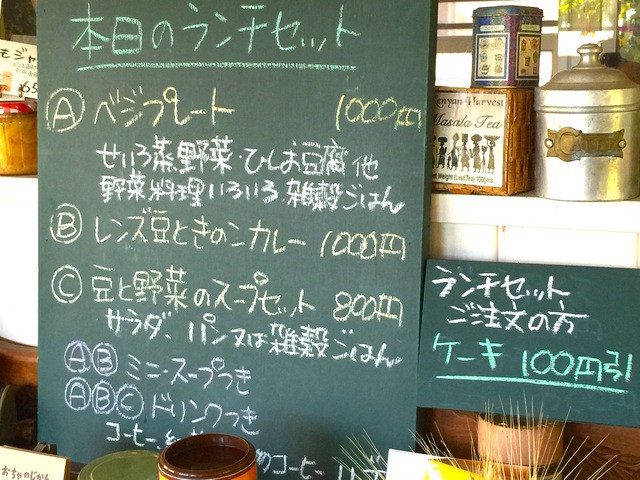 本日のランチセット
Ⓐ ベジプレート 1000円
せいろ蒸野菜・ひしお豆腐 他
野菜料理いろいろ. 雑穀ごはん
Ⓑ レンズ豆ときのこカレー 1000円
Ⓒ 豆と野菜のスープセット 800円
サラダ、パン又は雑穀ごはん
ⒶⒷ ミニ・スープつき
ⒶⒷⒸ ドリンクつき
コーヒー
コーヒー
ランチセット
ご注文の方
ケーキ 100円引
enyan Harvest
Masala Tea
t Weight (Leaf Tea) 100gms
おちゃのじかん